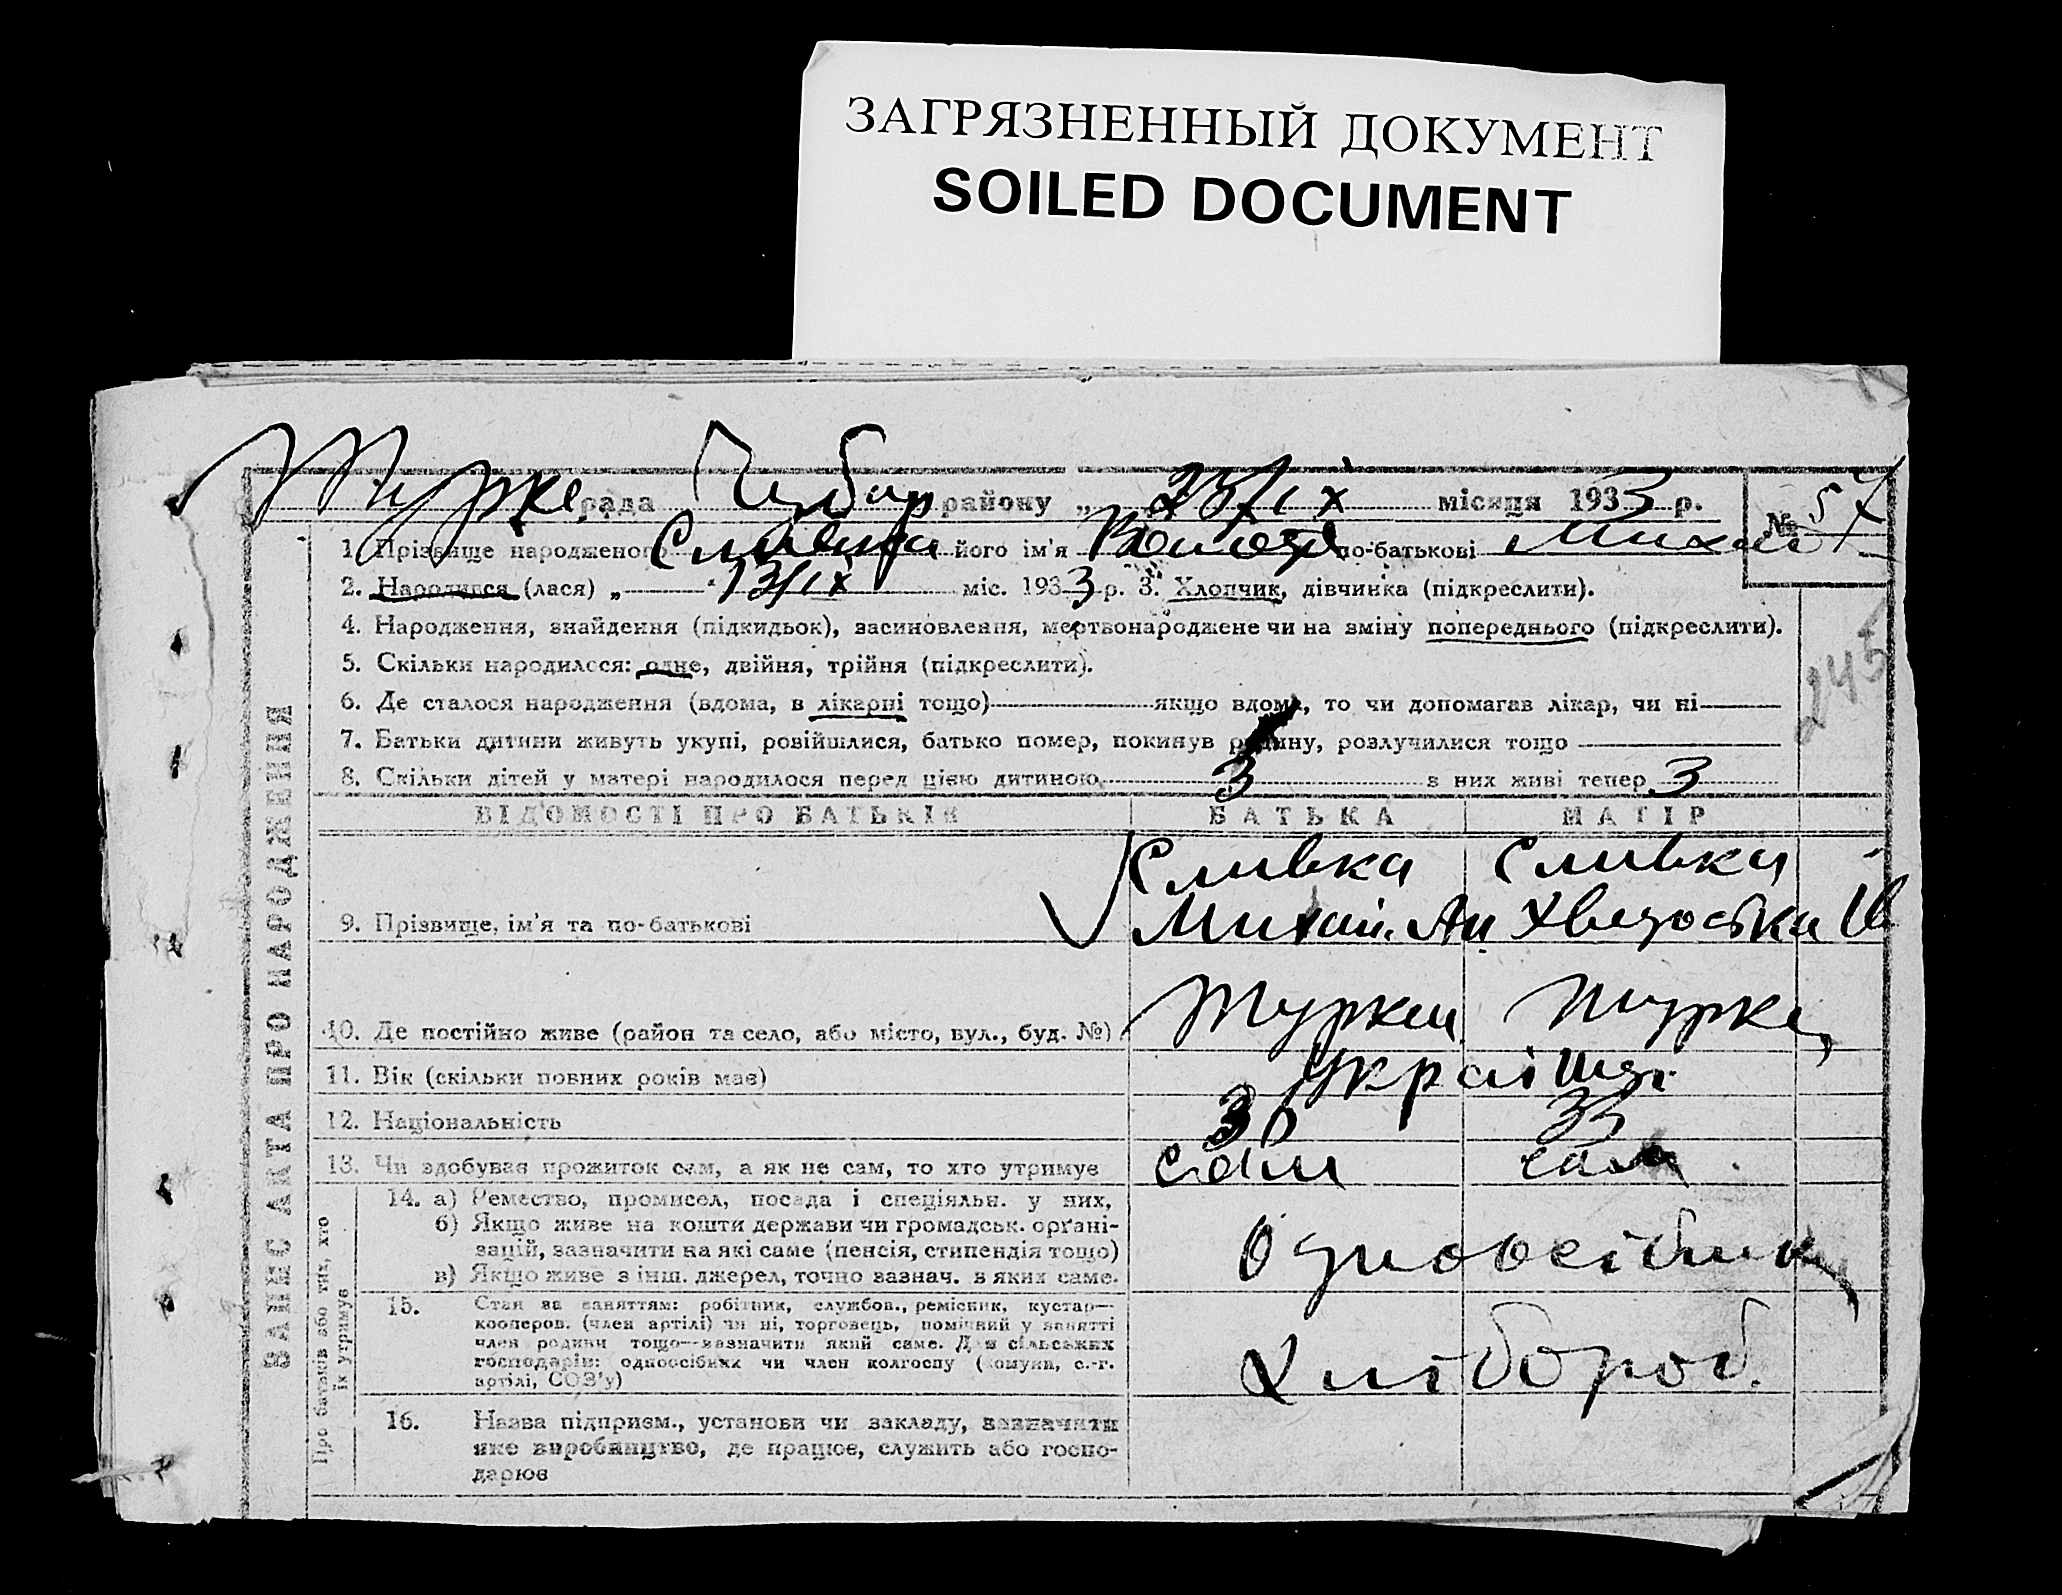 ЗАГРЯЗНЕННЫЙ ДОКУМЕНТ
SOILED DOCUMENT
рада району „ 25/IX місяця 1933 р. № 57
1. Прізвище народженого Сливка його ім'я по-батькові Михай
2. Народився (лася) „ 13/IX міс. 1933 р. 3. Хлопчик, дівчинка (підкреслити).
4. Народження, знайдення (підкидьок), засиновлення, мертвонароджене чи на зміну попереднього (підкреслити).
245
5. Скільки народилося: одне, двійня, трійня (підкреслити).
6. Де сталося народження (вдома, в лікарні тощо) якщо вдома, то чи допомагав лікар, чи ні
7. Батьки дитини живуть укупі, розійшлися, батько помер, покинув родину, розлучилися тощо
8. Скільки дітей у матері народилося перед цією дитиною 3 з них живі тепер 3
ЗАПИС АКТА ПРО НАРОДЖЕННЯ
ВІДОМОСТІ ПРО БАТЬКІВ БАТЬКА МАТІР
Сливка Сливка
9. Прізвище, ім'я та по-батькові Михай. Ан Хведоська Ів
10. Де постійно живе (район та село, або місто, вул., буд. №) Турки Турке
11. Вік (скільки повних років має) Українці
12. Національність 33
13. Чи здобуває прожиток сам, а як не сам, то хто утримує сам сам
Про батьків або тих, хто їх утримує
14. а) Ремество, промисел, посада і спеціяльн. у них,
б) Якщо живе на кошти держави чи громадськ. орґані-
зацій, зазначити на які саме (пенсія, стипендія тощо)
в) Якщо живе з інш. джерел, точно зазнач. з яких саме.
Одноосібник
15. Стан за заняттям: робітник, службов., ремісник, кустар—
кооперов. (член артілі) чи ні, торговець, помічний у занятті
член родини тощо—зазначити який саме. Для сільських
господарів: одноосібник чи член колгоспу (комуни, с.-г.
артілі, СОЗ'у)
Хлібороб.
16. Назва підприєм., установи чи закладу, зазначити
яке виробництво, де працює, служить або госпо-
дарює